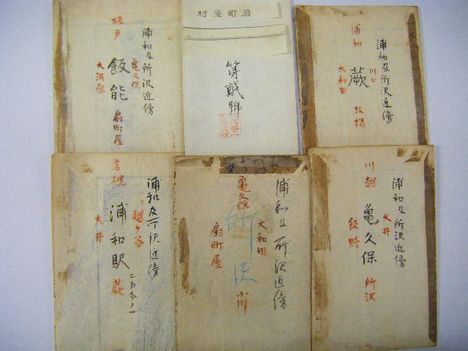 浦和及所沢近傍
坂戸
亀久保
飯能
大河原
扇町屋
扇町屋村
第貳號
浦和及所沢近傍
浦和
川口
蕨
大和田
板橋
浦和及所沢近傍
越ヶ谷
浦和駅
岩槻
大井
蕨
二万分ノ一
浦和及所沢近傍
大和田
所沢
亀久保
扇町屋
浦和及所沢近傍
川越
亀久保
大井
飯野
所沢